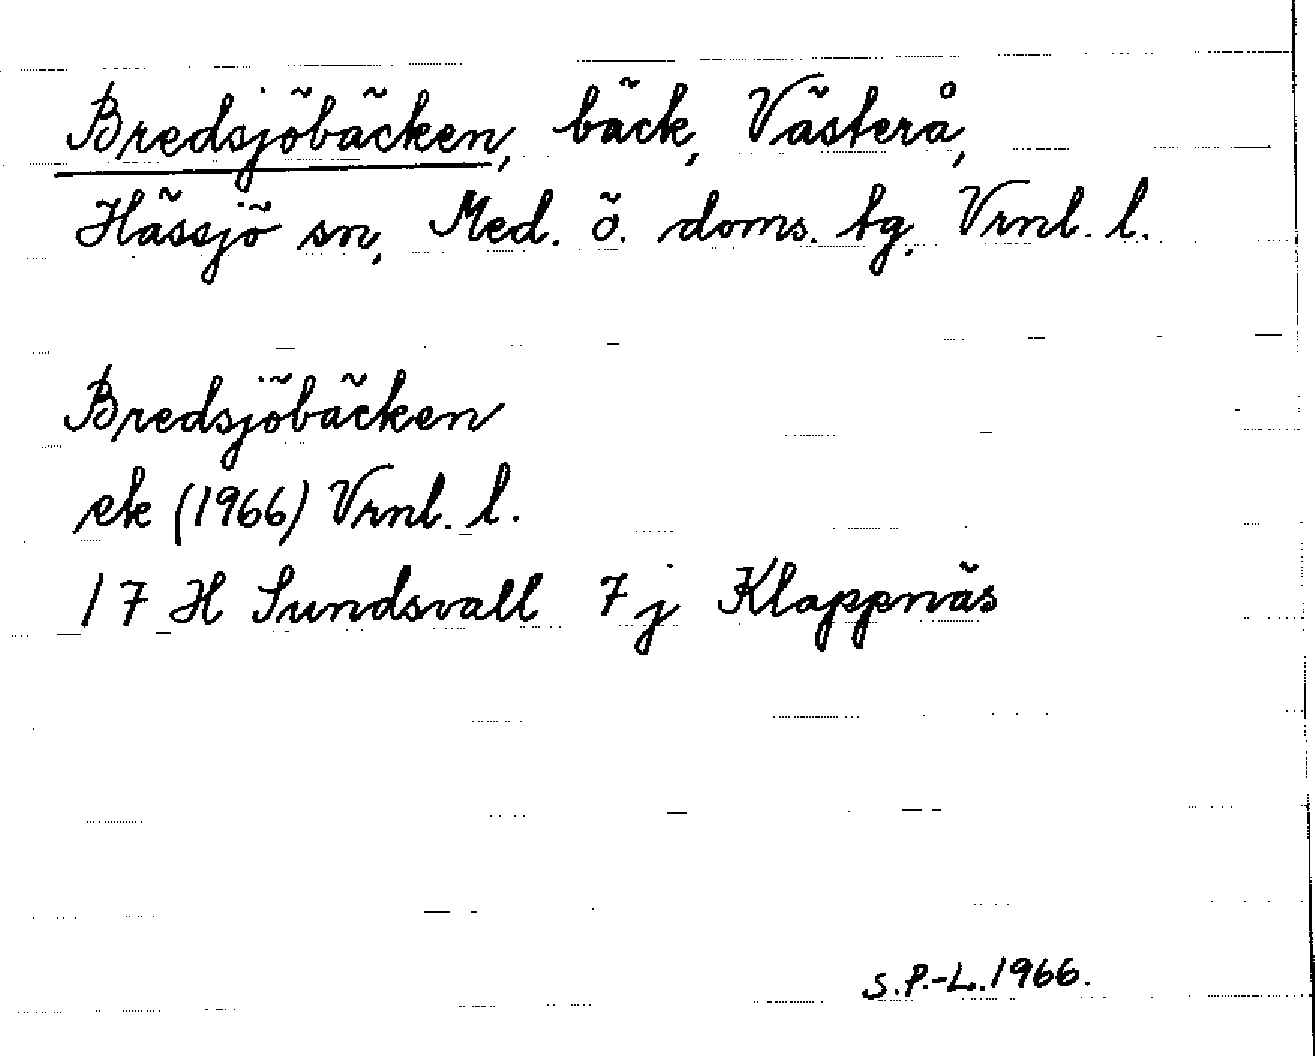 Bredsjöbäcken, bäck, Västerå,
Hässjö sn, Med. ö. doms. tg. Vrnl. l.
Bredsjöbäcken
ek (1966) Vrnl. l.
17 H Sundsvall 7 j Klappnäs
S.P.-L. 1966.